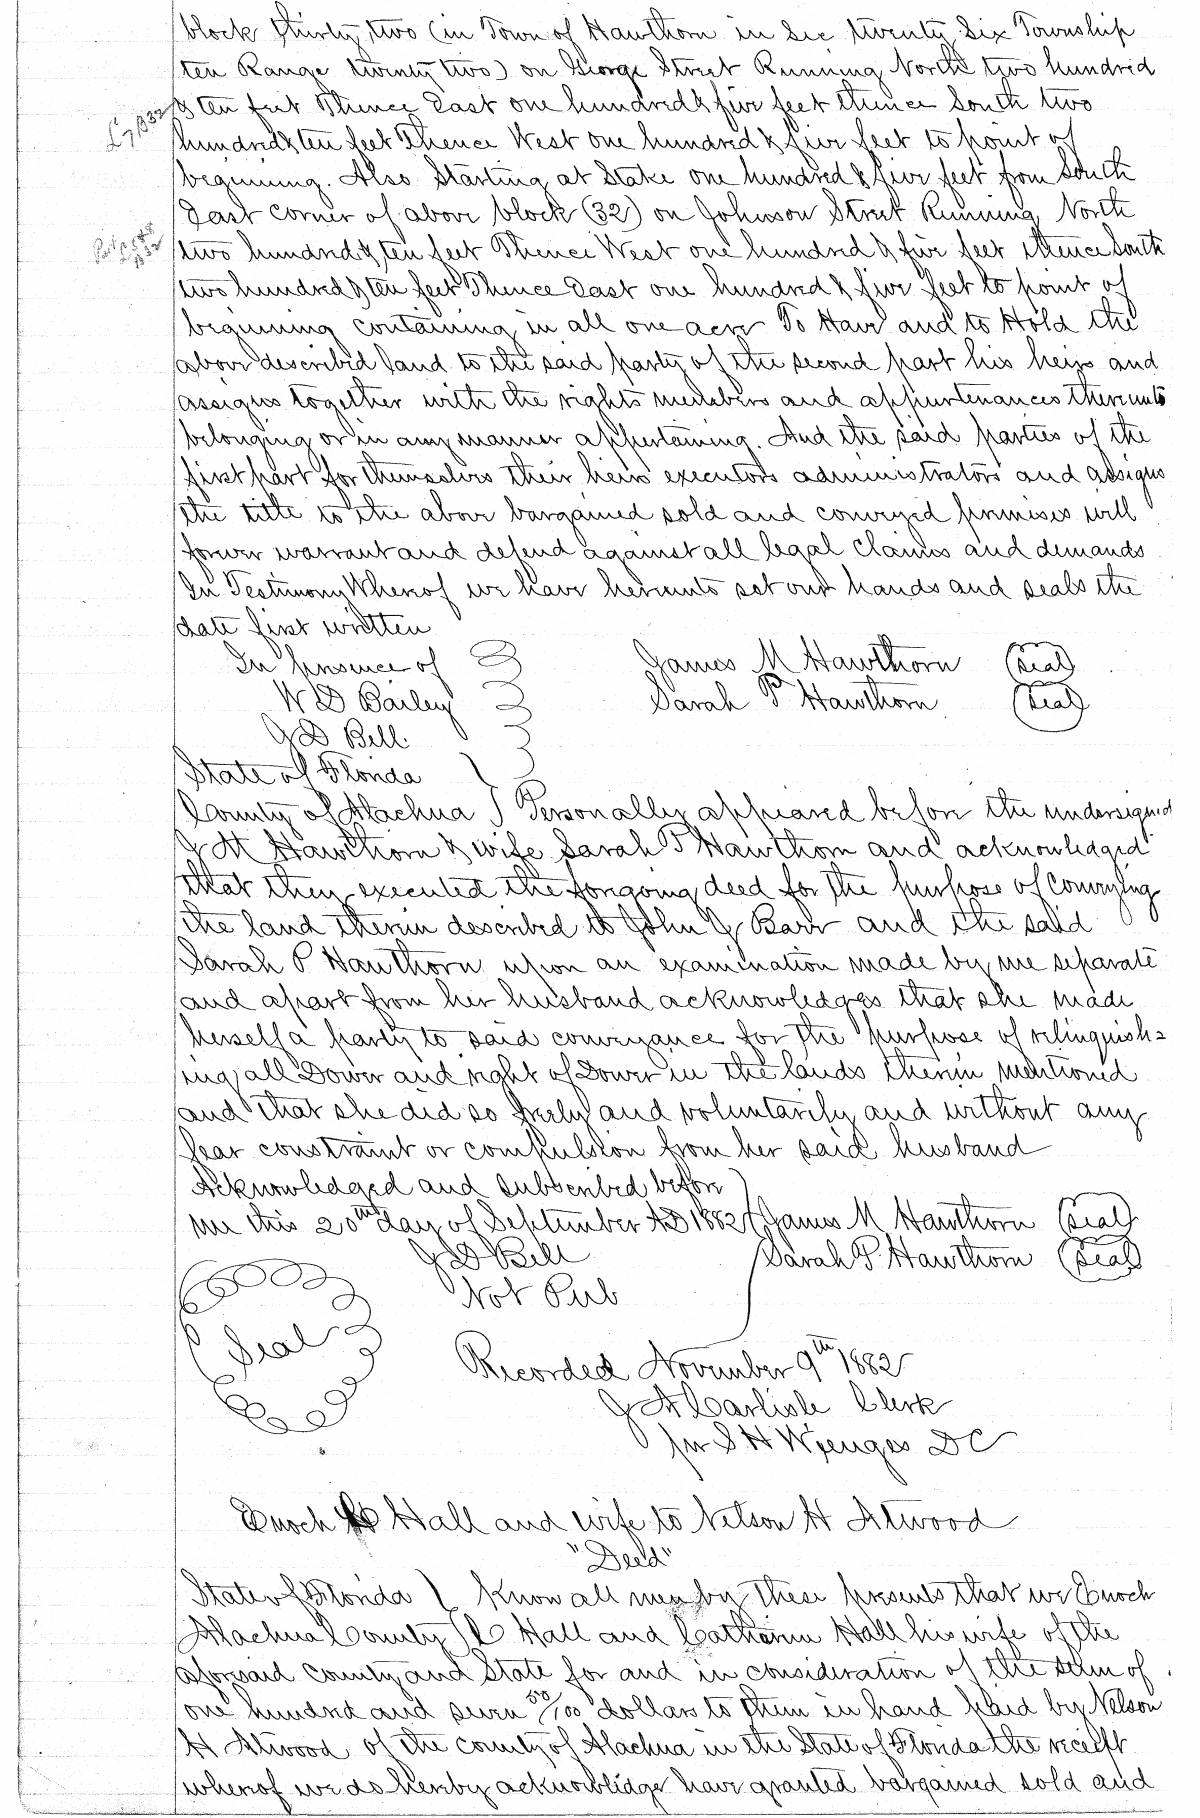 block thirty two (in Town of Hawthorn in Sec twenty Six Township
ten Range twenty two) on George Street Running North two hundred
& ten feet Thence East one hundred & five feet thence South two
hundred & ten feet Thence West one hundred & five feet to point of
beginning. Also Starting at Stake one hundred & five feet from South
East corner of above block (32) on Johnson Street Running North
two hundred & ten feet Thence West one hundred & five feet thence South
two hundred & ten feet Thence East one hundred & five feet to point of
beginning containing in all one acre To Have and to Hold the
above described land to the said party of the second part his heirs and
assigns together with the rights members and appurtenances thereunto
belonging or in any manner appertaining. And the said parties of the
first part for themselves their heirs executors administrators and assigns
the title to the above bargained sold and conveyed premises will
forever warrant and defend against all legal claims and demands
In Testimony Whereof we have hereunto set our hands and seals the
date first written
In presence of James M Hawthorn (seal)
W D Bailey Sarah P Hawthorn (seal)
J D Bell
State of Florida
County of Alachua } Personally appeared before the undersigned
J M Hawthorn & wife Sarah P Hawthorn and acknowledged
that they executed the forgoing deed for the purpose of conveying
the land therein described to John J Barr and the said
Sarah P Hawthorn upon an examination made by me separate
and apart from her husband acknowledges that she made
herself a party to said conveyance for the purpose of relinquish=
ing all Dower and right of Dower in the lands therein mentioned
and that she did so freely and voluntarily and without any
fear constraint or compulsion from her said husband
Acknowledged and subscribed before
me this 20th day of September AD 1882 James M Hawthorn (seal)
J D Bell Sarah P Hawthorn (seal)
Not Pub
Seal
Recorded November 9th 1882
J A Carlisle Clerk
per S H Wienges DC
Enoch Hall and wife to Nelson H Atwood
"Deed"
State of Florida } Know all men by these presents that we Enoch
Alachua County } C Hall and Catherine Hall his wife of the
aforesaid County and State for and in consideration of the sum of
one hundred and seven 50/100 dollars to them in hand paid by Nelson
H Atwood of the county of Alachua in the State of Florida the receipt
whereof we do hereby acknowledge have granted bargained sold and